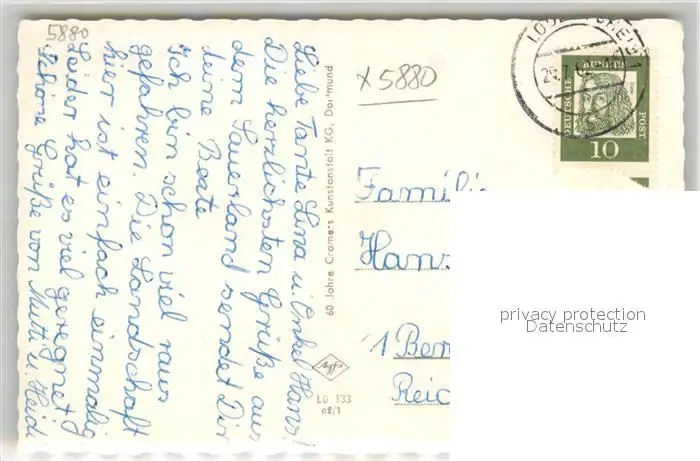 5880
Liebe Tante Lina u. Onkel Hans!
Die herzlichsten Grüße aus
dem Sauerland sendet Dir
deine Beate
Ich bin schon viel raus
gefahren. Die Landschaft
hier ist einfach einmalig
Leider hat es viel geregnet
Schöne Grüße von Mutti u. Heidi
60 Jahre Cramers Kunstanstalt KG, Dortmund
Agfa
LD 133
x 5880
DEUTSCHE
BUNDES
POST
10
Familie
Hans
1 Ber
Reic
privacy protection
Datenschutz